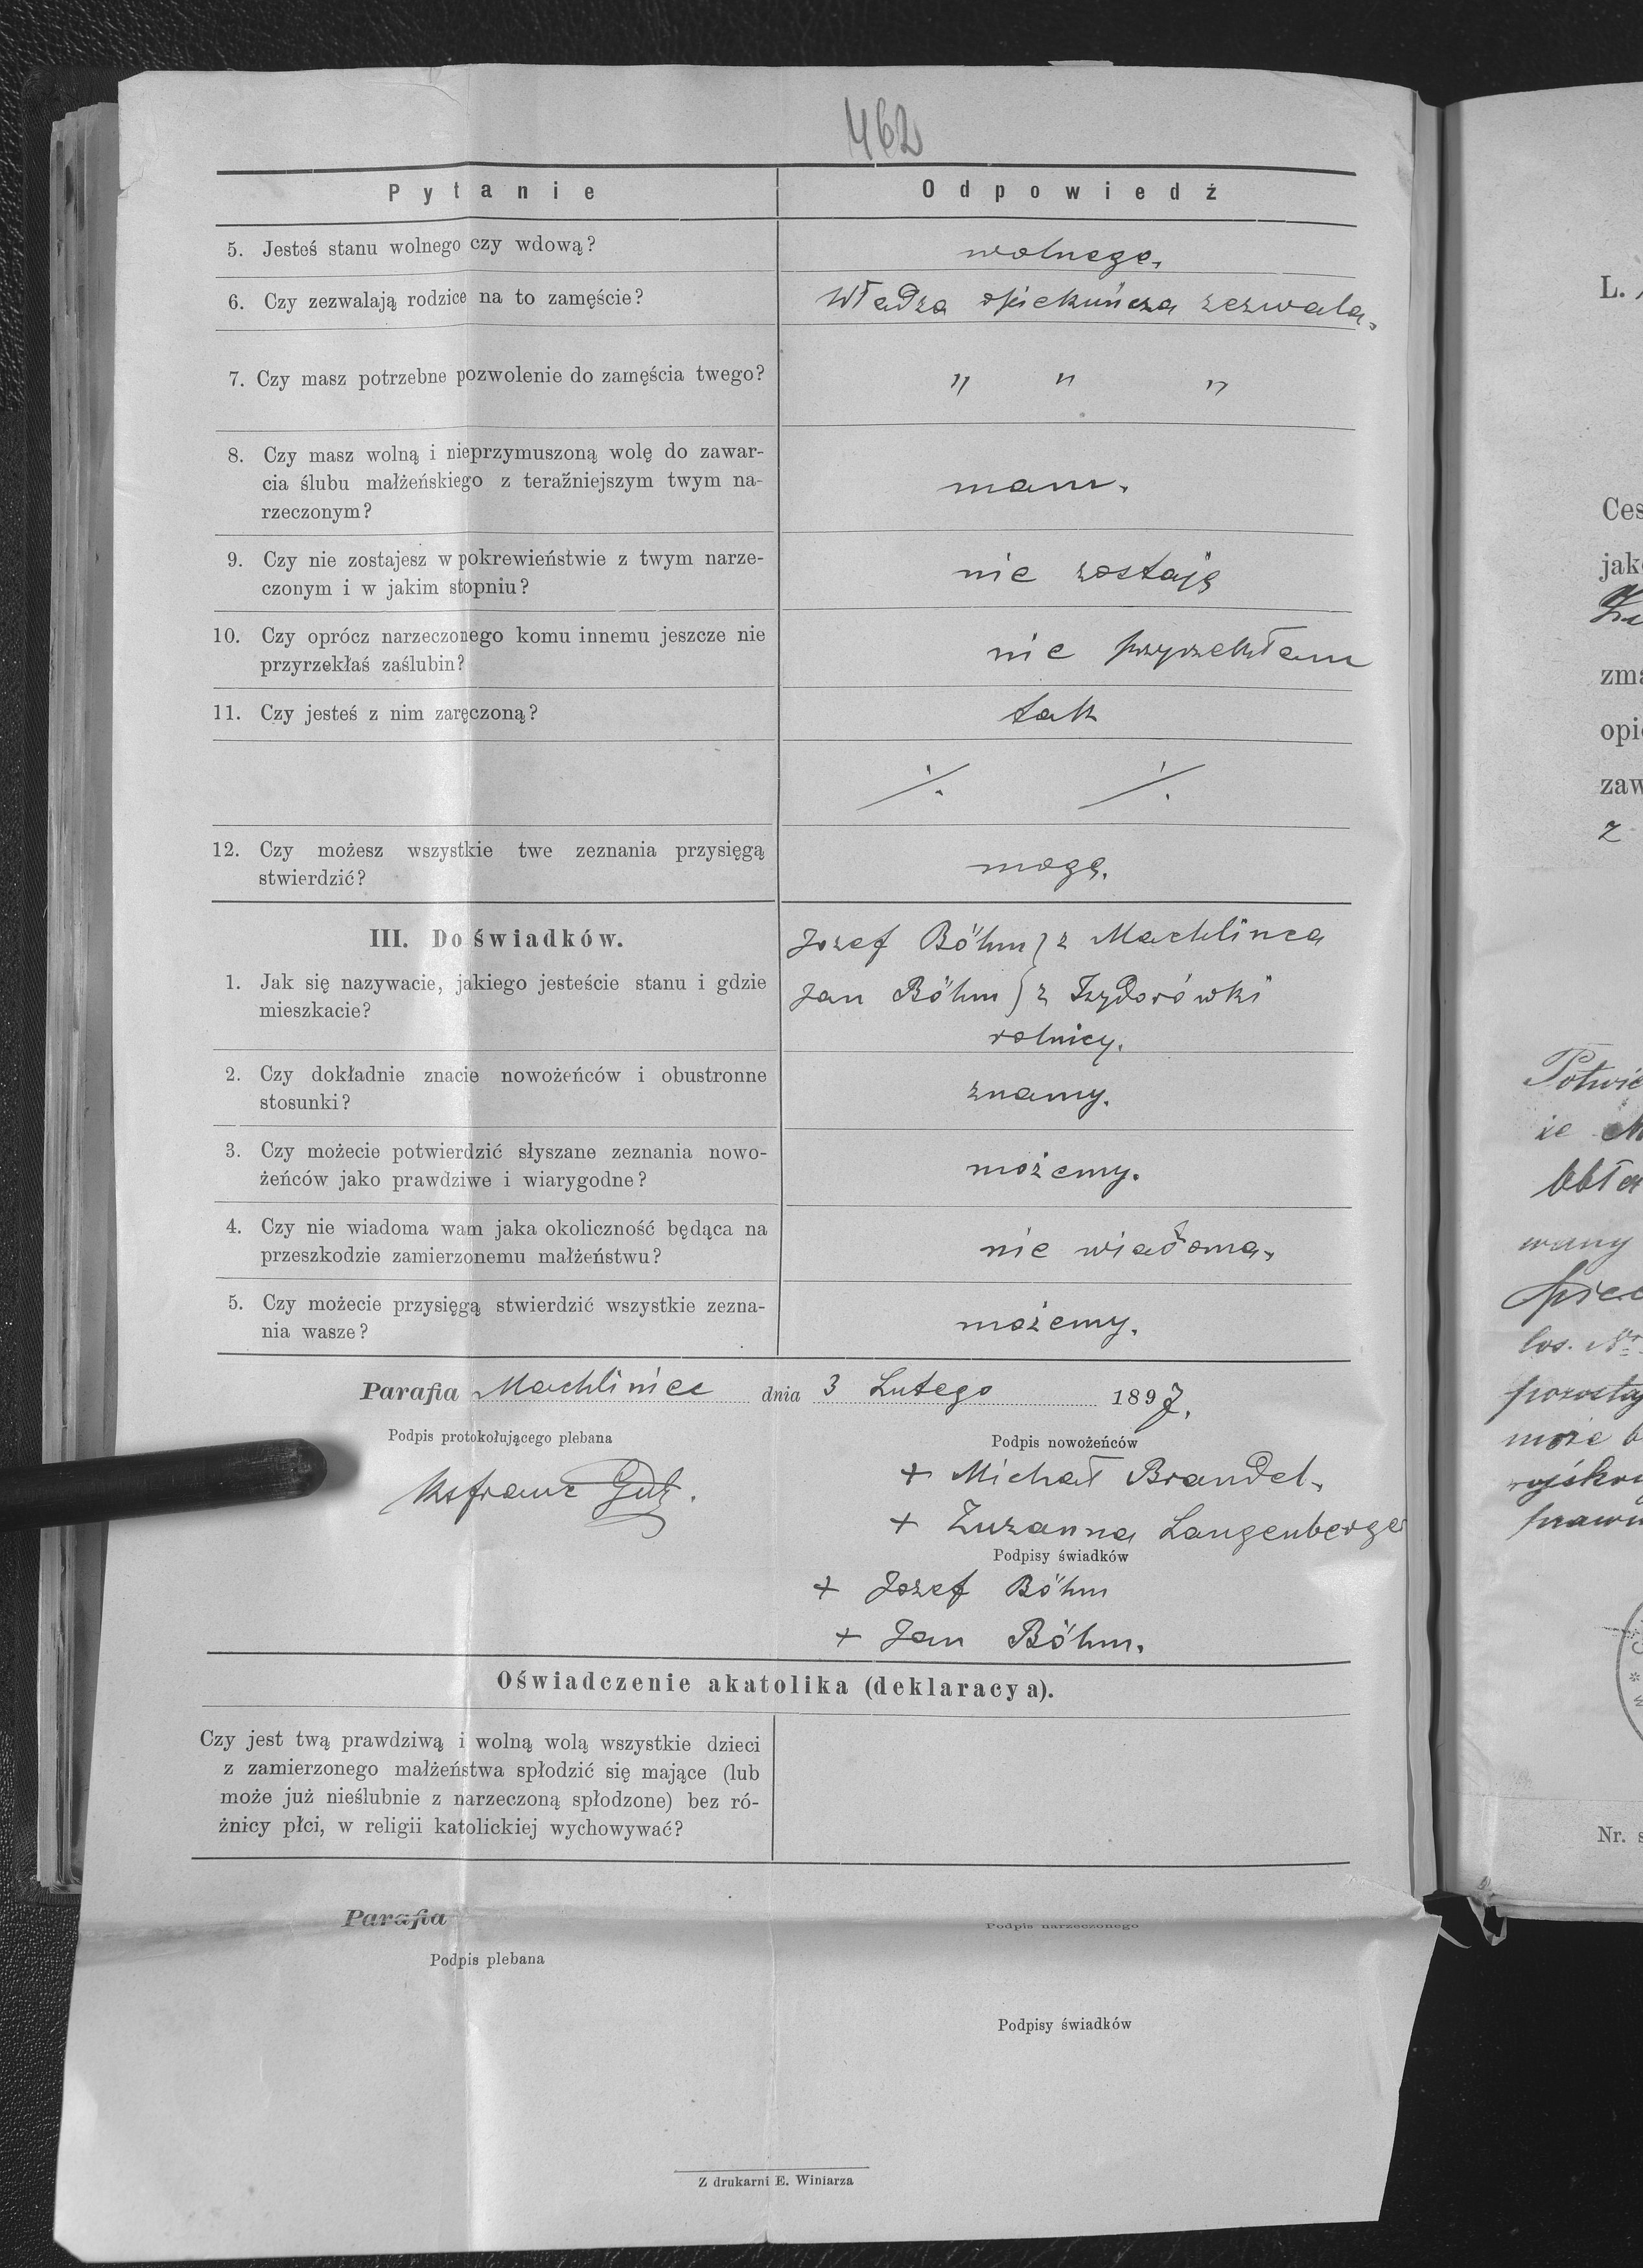 462
Pytanie
Odpowiedź
5. Jesteś stanu wolnego czy wdową?
wolnego.
6. Czy zezwalają rodzice na to zamęście?
Władza opiekuńcza zezwala.
7. Czy masz potrzebne pozwolenie do zamęścia twego?
" " "
8. Czy masz wolną i nieprzymuszoną wolę do zawar-
cia ślubu małżeńskiego z teraźniejszym twym na-
rzeczonym?
mam.
9. Czy nie zostajesz w pokrewieństwie z twym narze-
czonym i w jakim stopniu?
nie zostaję
10. Czy oprócz narzeczonego komu innemu jeszcze nie
przyrzekłaś zaślubin?
nie przyrzekłam
11. Czy jesteś z nim zaręczoną?
tak
./. ./.
12. Czy możesz wszystkie twe zeznania przysięgą
stwierdzić?
mogę.
III. Do świadków.
1. Jak się nazywacie, jakiego jesteście stanu i gdzie
mieszkacie?
Jozef Böhm } z Machlinca
Jan Böhm } z Izydorówki
rolnicy.
2. Czy dokładnie znacie nowożeńców i obustronne
stosunki?
znamy.
3. Czy możecie potwierdzić słyszane zeznania nowo-
żeńców jako prawdziwe i wiarygodne?
możemy.
4. Czy nie wiadoma wam jaka okoliczność będąca na
przeszkodzie zamierzonemu małżeństwu?
nie wiadoma.
5. Czy możecie przysięgą stwierdzić wszystkie zezna-
nia wasze?
możemy.
Parafia Machliniec dnia 3 Lutego 1897.
Podpis protokołującego plebana
Podpis nowożeńców
+ Michał Brandel.
+ Zuzanna Langenberger
Podpisy świadków
+ Jozef Böhm
+ Jan Böhm.
Oświadczenie akatolika (deklaracya).
Czy jest twą prawdziwą i wolną wolą wszystkie dzieci
z zamierzonego małżeństwa spłodzić się mające (lub
może już nieślubnie z narzeczoną spłodzone) bez ró-
żnicy płci, w religii katolickiej wychowywać?
Parafia
Podpis narzeczonego
Podpis plebana
Podpisy świadków
Z drukarni E. Winiarza
L.
Ces
jak
zma
opi
zaw
z
Nr. s